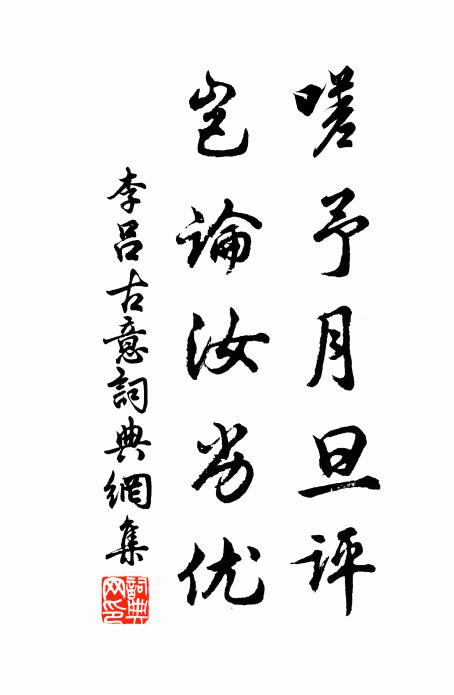 嗟予月旦评
岂論汝劣优
李吕古意詞典網集
詞典网印